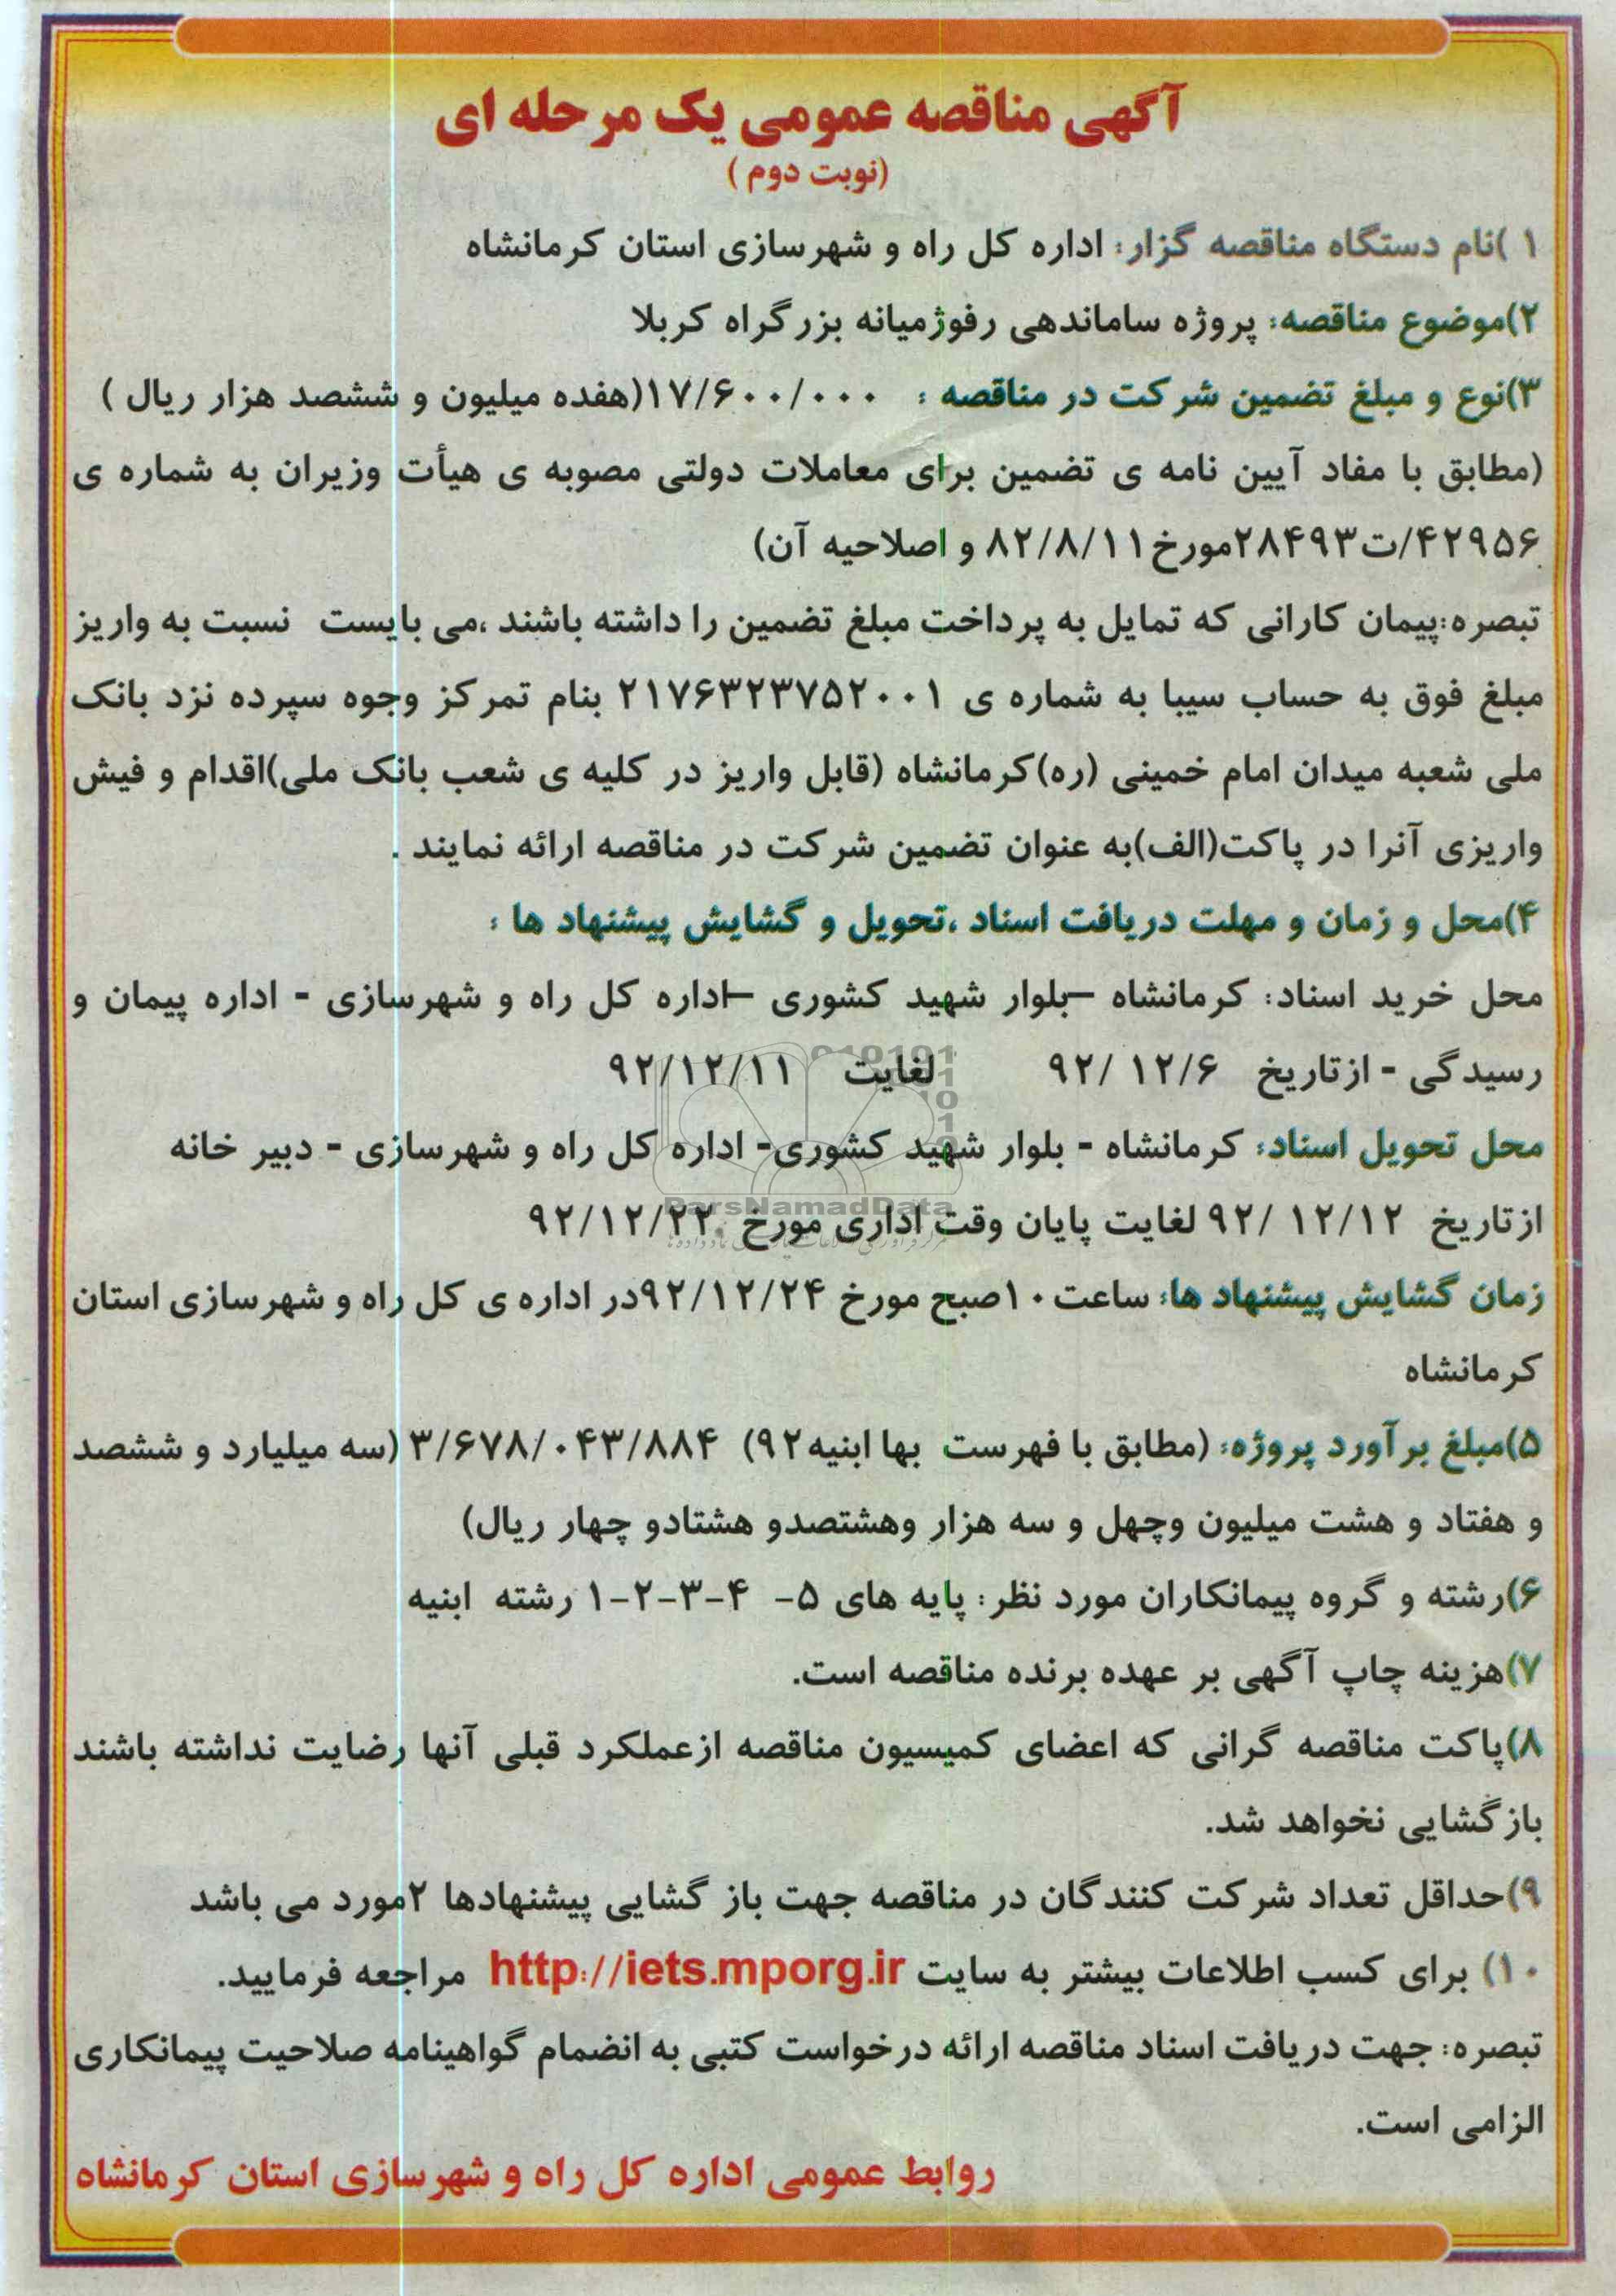 آگهی مناقصه عمومی یک مرحله ای
(نوبت دوم )
۱ )نام دستگاه مناقصه گزار: اداره کل راه و شهرسازی استان کرمانشاه
۲)موضوع مناقصه: پروژه ساماندهی رفوژمیانه بزرگراه کربلا
۳)نوع و مبلغ تضمین شرکت در مناقصه : ۱۷/۶۰۰/۰۰۰(هفده میلیون و ششصد هزار ریال )
(مطابق با مفاد آیین نامه ی تضمین برای معاملات دولتی مصوبه ی هیأت وزیران به شماره ی
۴۲۹۵۶/ت۲۸۴۹۳مورخ۸۲/۸/۱۱ و اصلاحیه آن)
تبصره:پیمان کارانی که تمایل به پرداخت مبلغ تضمین را داشته باشند ،می بایست نسبت به واریز
مبلغ فوق به حساب سیبا به شماره ی ۲۱۷۶۳۲۳۷۵۲۰۰۱ بنام تمرکز وجوه سپرده نزد بانک
ملی شعبه میدان امام خمینی (ره)کرمانشاه (قابل واریز در کلیه ی شعب بانک ملی)اقدام و فیش
واریزی آنرا در پاکت(الف)به عنوان تضمین شرکت در مناقصه ارائه نمایند .
۴)محل و زمان و مهلت دریافت اسناد ،تحویل و گشایش پیشنهاد ها :
محل خرید اسناد: کرمانشاه –بلوار شهید کشوری –اداره کل راه و شهرسازی - اداره پیمان و
رسیدگی - ازتاریخ ۹۲/ ۱۲/۶ لغایت ۹۲/۱۲/۱۱
محل تحویل اسناد: کرمانشاه - بلوار شهید کشوری- اداره کل راه و شهرسازی - دبیر خانه
ازتاریخ ۹۲/ ۱۲/۱۲ لغایت پایان وقت اداری مورخ ۹۲/۱۲/۲۲
زمان گشایش پیشنهاد ها: ساعت۱۰صبح مورخ ۹۲/۱۲/۲۴در اداره ی کل راه و شهرسازی استان
کرمانشاه
۵)مبلغ برآورد پروژه: (مطابق با فهرست بها ابنیه۹۲) ۳/۶۷۸/۰۴۳/۸۸۴ (سه میلیارد و ششصد
و هفتاد و هشت میلیون وچهل و سه هزار وهشتصدو هشتادو چهار ریال)
۶)رشته و گروه پیمانکاران مورد نظر: پایه های ۵- ۴-۳-۲-۱ رشته ابنیه
۷)هزینه چاپ آگهی بر عهده برنده مناقصه است.
۸)پاکت مناقصه گرانی که اعضای کمیسیون مناقصه ازعملکرد قبلی آنها رضایت نداشته باشند
بازگشایی نخواهد شد.
۹)حداقل تعداد شرکت کنندگان در مناقصه جهت باز گشایی پیشنهادها ۲مورد می باشد
۱۰) برای کسب اطلاعات بیشتر به سایت http://iets.mporg.ir مراجعه فرمایید.
تبصره: جهت دریافت اسناد مناقصه ارائه درخواست کتبی به انضمام گواهینامه صلاحیت پیمانکاری
الزامی است.
روابط عمومی اداره کل راه و شهرسازی استان کرمانشاه
ParsNamadData